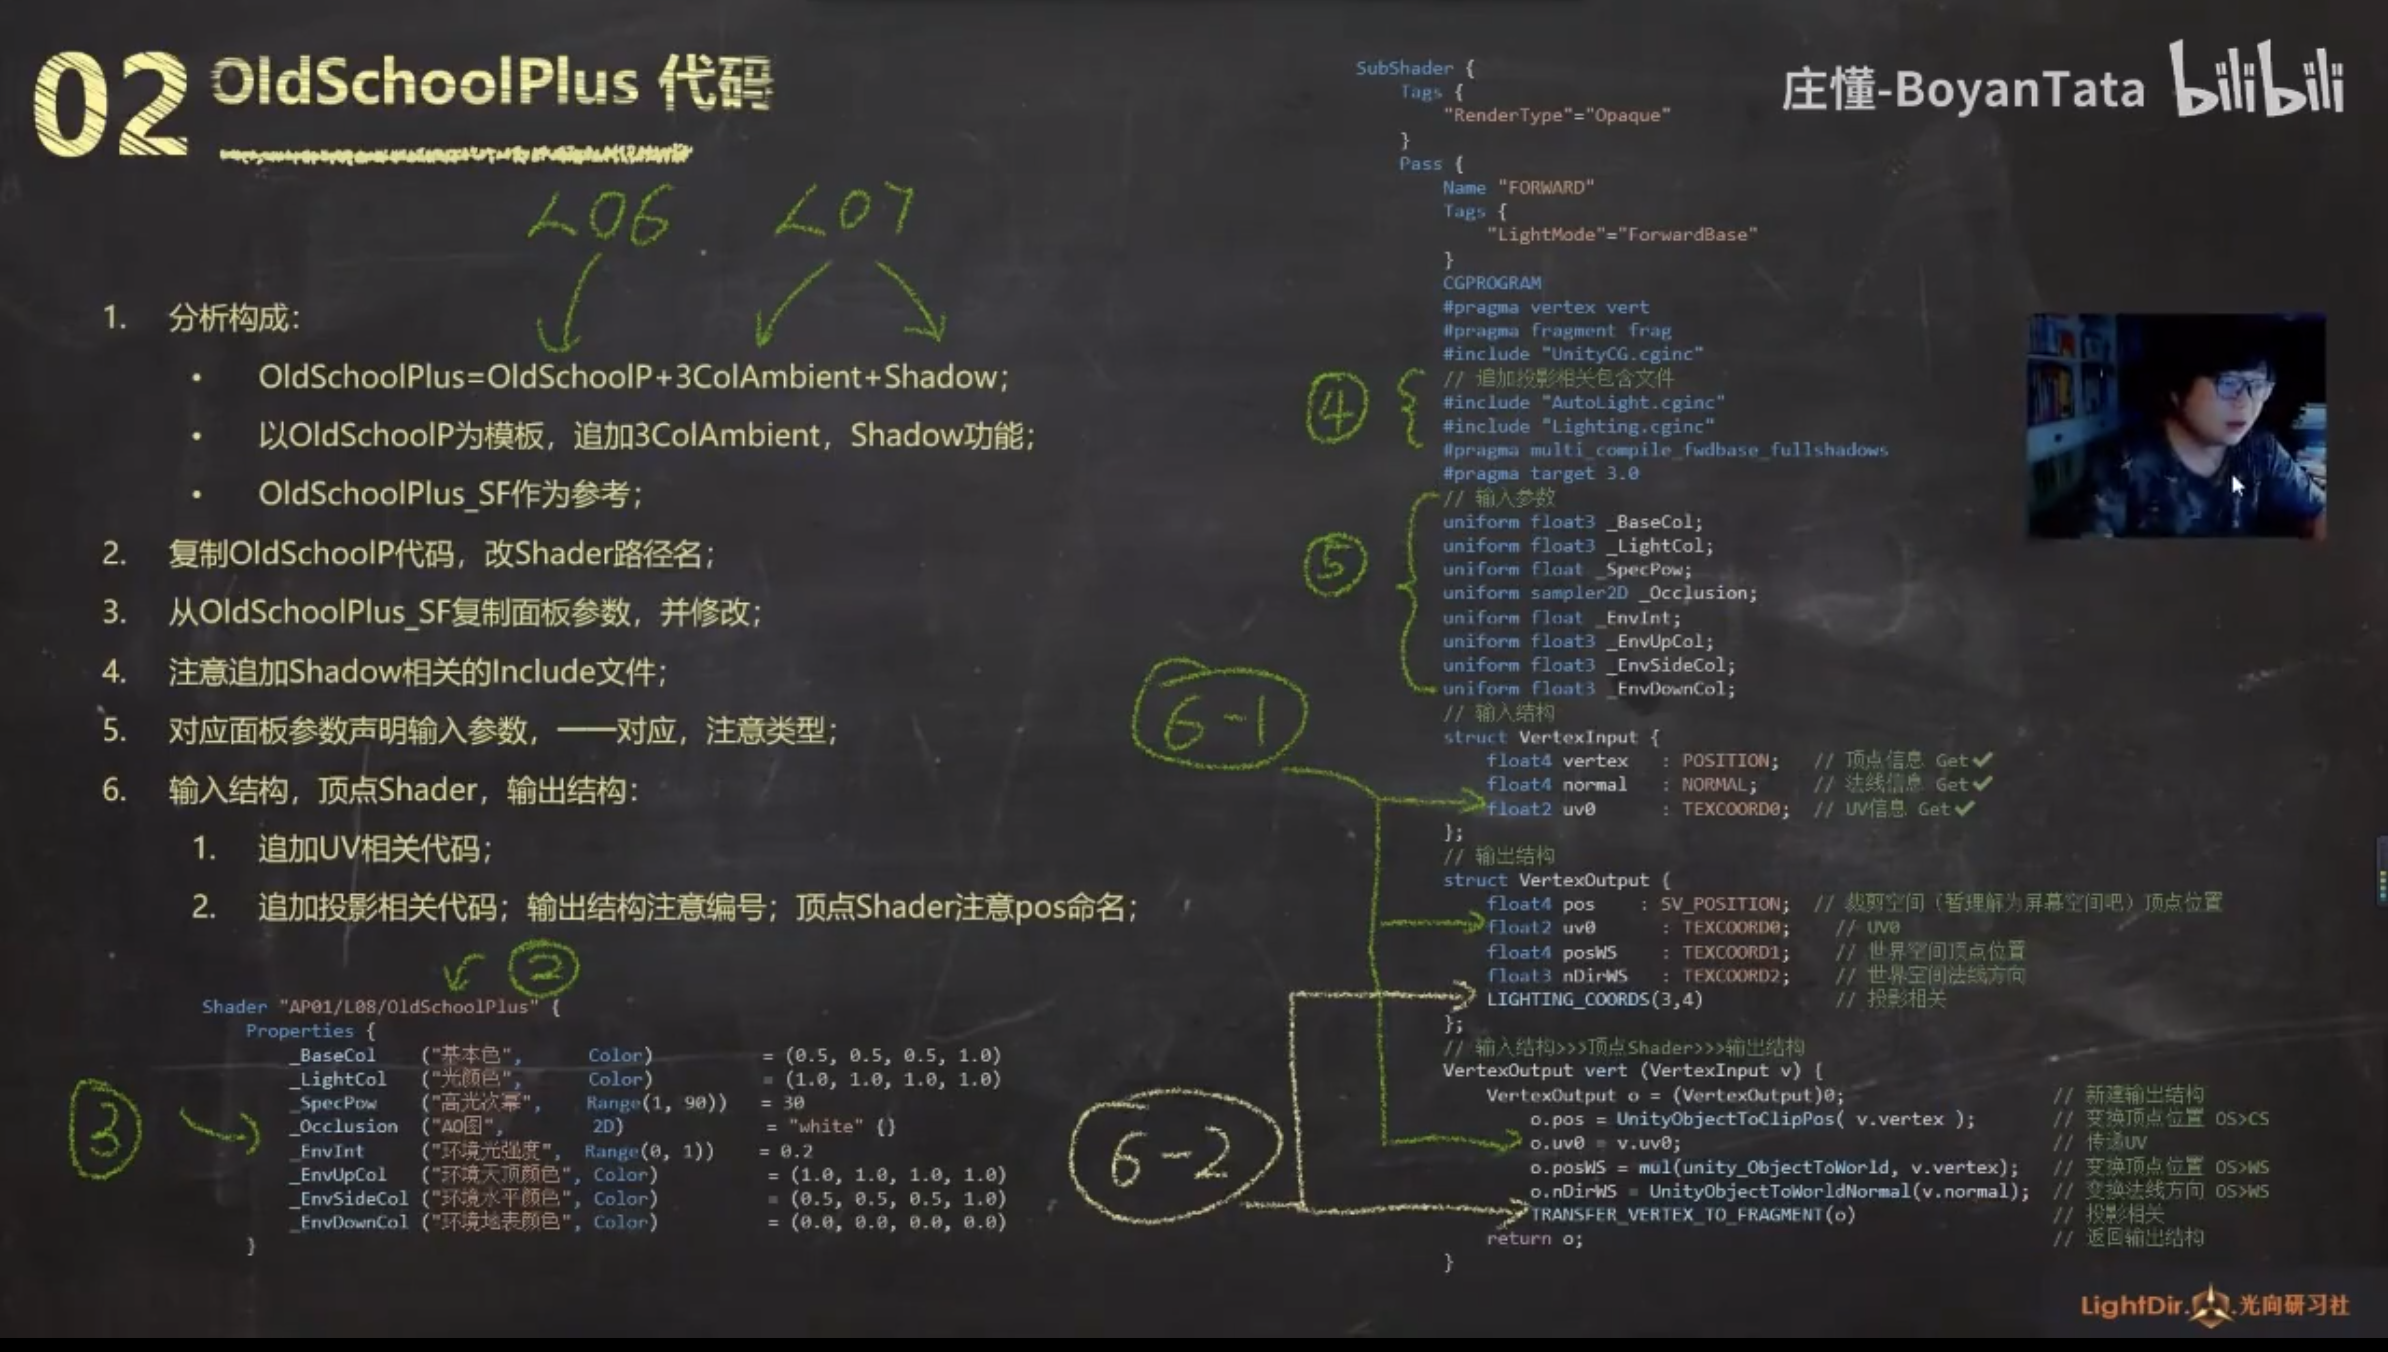 02 OldSchoolPlus 代码
庄懂-BoyanTata bilibili
L06 L07
1. 分析构成：
• OldSchoolPlus=OldSchoolP+3ColAmbient+Shadow；
• 以OldSchoolP为模板，追加3ColAmbient，Shadow功能；
• OldSchoolPlus_SF作为参考；
2. 复制OldSchoolP代码，改Shader路径名；
3. 从OldSchoolPlus_SF复制面板参数，并修改；
4. 注意追加Shadow相关的Include文件；
5. 对应面板参数声明输入参数，一一对应，注意类型；
6. 输入结构，顶点Shader，输出结构：
1. 追加UV相关代码；
2. 追加投影相关代码；输出结构注意编号；顶点Shader注意pos命名；
②
Shader "AP01/L08/OldSchoolPlus" {
Properties {
③
_BaseCol ("基本色", Color) = (0.5, 0.5, 0.5, 1.0)
_LightCol ("光颜色", Color) = (1.0, 1.0, 1.0, 1.0)
_SpecPow ("高光次幂", Range(1, 90)) = 30
_Occlusion ("AO图", 2D) = "white" {}
_EnvInt ("环境光强度", Range(0, 1)) = 0.2
_EnvUpCol ("环境天顶颜色", Color) = (1.0, 1.0, 1.0, 1.0)
_EnvSideCol ("环境水平颜色", Color) = (0.5, 0.5, 0.5, 1.0)
_EnvDownCol ("环境地表颜色", Color) = (0.0, 0.0, 0.0, 0.0)
}
SubShader {
Tags {
"RenderType"="Opaque"
}
Pass {
Name "FORWARD"
Tags {
"LightMode"="ForwardBase"
}
CGPROGRAM
#pragma vertex vert
#pragma fragment frag
#include "UnityCG.cginc"
④
// 追加投影相关包含文件
#include "AutoLight.cginc"
#include "Lighting.cginc"
#pragma multi_compile_fwdbase_fullshadows
#pragma target 3.0
⑤
// 输入参数
uniform float3 _BaseCol;
uniform float3 _LightCol;
uniform float _SpecPow;
uniform sampler2D _Occlusion;
uniform float _EnvInt;
uniform float3 _EnvUpCol;
uniform float3 _EnvSideCol;
uniform float3 _EnvDownCol;
6-1
// 输入结构
struct VertexInput {
float4 vertex : POSITION; // 顶点信息 Get✔
float4 normal : NORMAL; // 法线信息 Get✔
float2 uv0 : TEXCOORD0; // UV信息 Get✔
};
// 输出结构
struct VertexOutput {
float4 pos : SV_POSITION; // 裁剪空间（暂理解为屏幕空间吧）顶点位置
float2 uv0 : TEXCOORD0; // UV0
float4 posWS : TEXCOORD1; // 世界空间顶点位置
float3 nDirWS : TEXCOORD2; // 世界空间法线方向
LIGHTING_COORDS(3,4) // 投影相关
};
// 输入结构>>>顶点Shader>>>输出结构
VertexOutput vert (VertexInput v) {
VertexOutput o = (VertexOutput)0; // 新建输出结构
o.pos = UnityObjectToClipPos( v.vertex ); // 变换顶点位置 OS>CS
o.uv0 = v.uv0; // 传递UV
6-2
o.posWS = mul(unity_ObjectToWorld, v.vertex); // 变换顶点位置 OS>WS
o.nDirWS = UnityObjectToWorldNormal(v.normal); // 变换法线方向 OS>WS
TRANSFER_VERTEX_TO_FRAGMENT(o) // 投影相关
return o; // 返回输出结构
}
LightDir.光向研习社